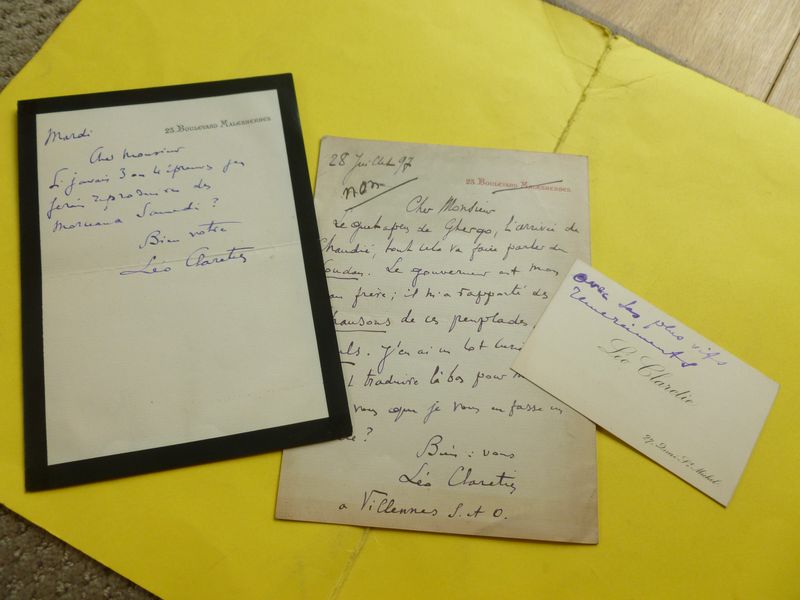 25 BOULEVARD MALESHERBES
Mardi
Cher Monsieur
Si j'avais 3 ou 4 épreuves, j'en
ferais reproduire des
morceaux Samedi ?
Bien votre
Léo Claretie
28 Juillet 97
25 BOULEVARD MALESHERBES
non
Cher Monsieur
Le guet apens de Ghergo, l'arrivée de
Chaudié, tout cela va faire parler du
Soudan. Le gouverneur est mon
frère ; il m'a rapporté des
chansons de ces peuplades,
J'en ai un lot
traduire là bas pour
vous que je vous en fasse un
?
Bien à vous
Léo Claretie
à Villennes S. et O.
avec les plus vifs
remerciments
Léo Claretie
27, Quai St. Michel